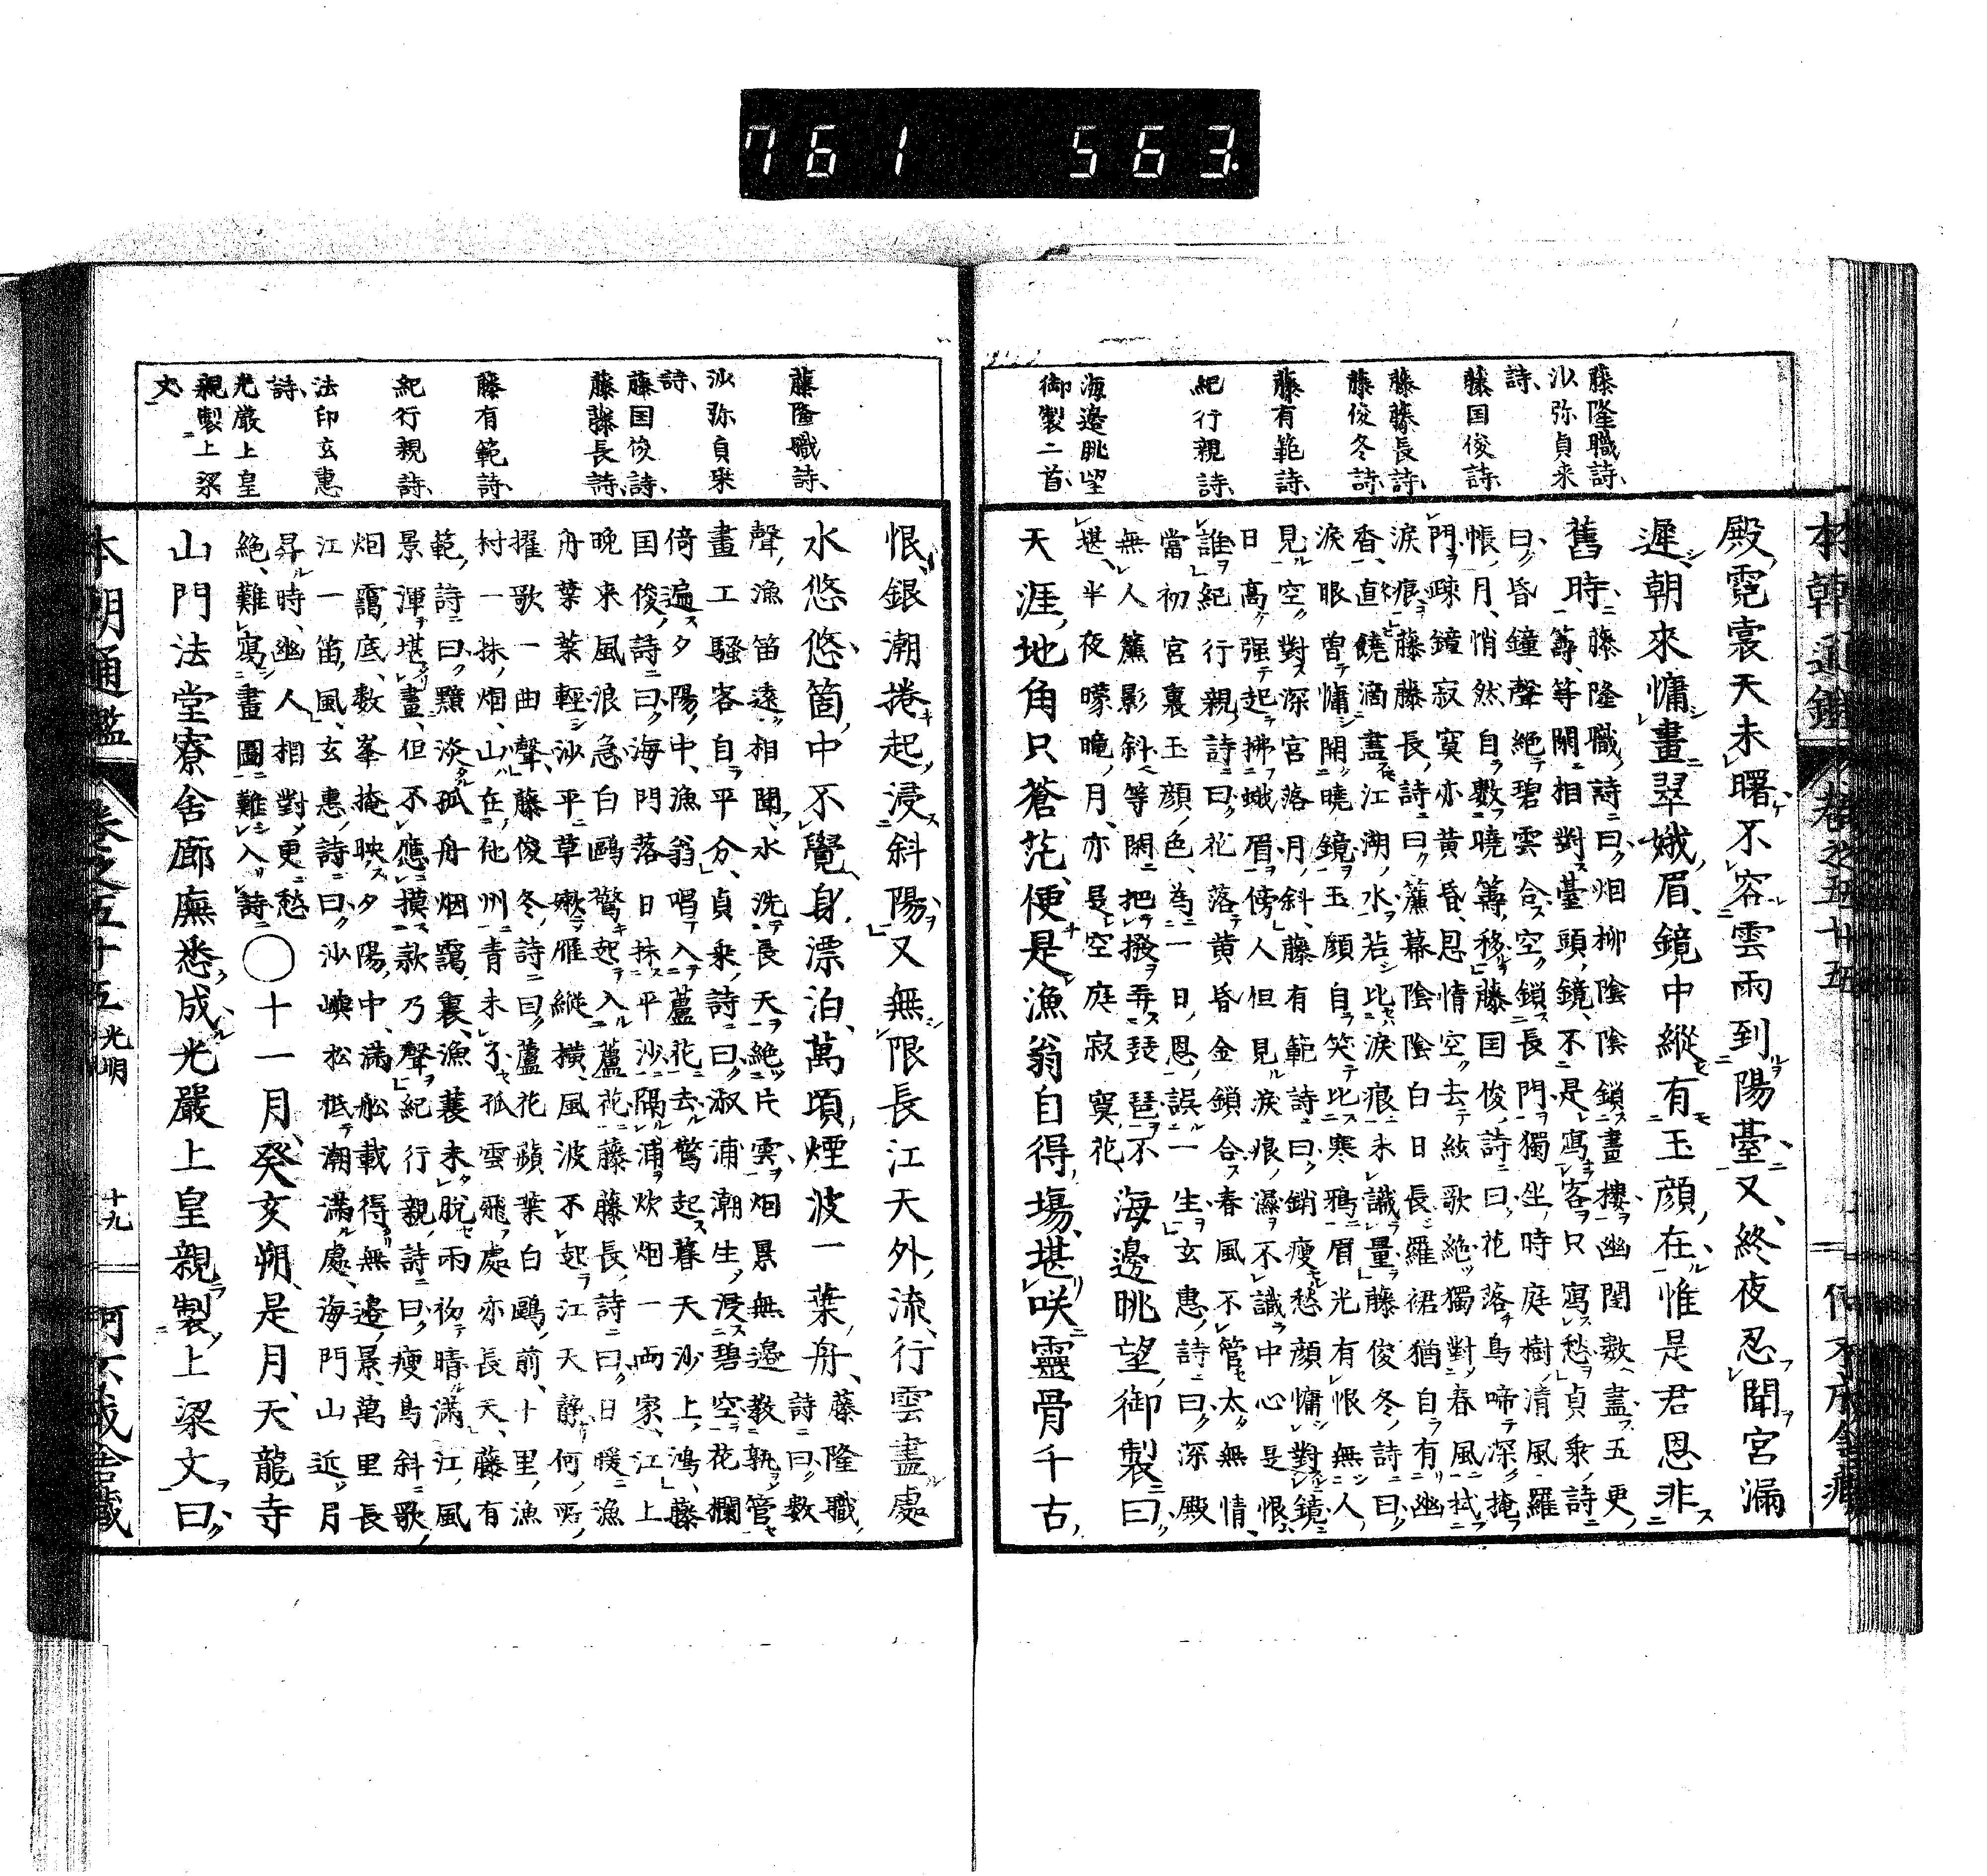 761 563.
藤隆職詩、
沙弥貞乗
詩、
藤国俊詩、
藤藤長詩、
藤俊冬詩、
藤有範詩、
紀行親詩、
海邉眺望
御製二首、
殿、霓裳天未曙、不容雲雨到陽臺、又終夜忍聞宮漏
遅、朝來慵畫翠娥眉、鏡中縱有玉顔在、惟是君恩非
舊時、
藤隆職詩曰、烟柳陰陰鎖畫樓、幽閨數盡五更
籌、等閑相對臺頭鏡、不是寫客只寫愁、貞乗詩
曰、昏鐘聲絶碧雲合、空鎖長門獨坐時、庭樹清風羅
帳月、悄然自數曉籌移、藤国俊詩曰、花落鳥啼深掩
門、疎鐘寂寞亦黄昏、恩情空去絃歌絶、獨對春風拭
淚痕、藤藤長詩曰、簾幕陰陰白日長、羅裙猶自有幽
香、直饒滴盡江湖水、若比淚痕未識量、藤俊冬詩曰、
淚眼曽慵開曉鏡、玉顔自笑比寒鴉、眉光有恨無人
見、空對深宮落月斜、藤有範詩曰、銷瘦愁顔慵對鏡、
日高强起拂蛾眉、傍人但見淚痕濕、不識中心是恨
誰、紀行親詩曰、花落黄昏金鎖合、春風不管太無情、
當初宮裏玉顔色、為一日恩誤一生、玄惠詩曰、深殿
無人簾影斜、等閑把撥弄琵琶、不
堪半夜曚曨月、亦是空庭寂寞花、
海邊眺望、御製曰、
天涯地角只蒼茫、便是漁翁自得場、堪咲靈骨千古
藤隆職詩、
沙弥貞乗
詩、
藤国俊詩、
藤藤長詩、
藤有範詩、
紀行親詩、
法印玄惠
詩、
光嚴上皇
親製上梁
文
恨、銀潮捲起浸斜陽、又無限長江天外流、行雲盡處
水悠悠、箇中不覺身漂泊、萬頃煙波一葉舟、
藤隆職
詩曰、數
聲漁笛遠相聞、水洗長天絶片雲、烟景無邉教孰管、
畫工騷客自平分、貞乗詩曰、淑浦潮生浸碧空、花欄
倚遍夕陽中、漁翁唱入蘆花去、驚起暮天沙上鴻、藤
国俊詩曰、海門落日抹平沙、隔浦炊烟一両家、江上
晩來風浪急、白鷗驚起入蘆花、藤藤長詩曰、日暖漁
舟葉葉輕、沙平草嫩雁縱横、風波不起江天静、何処
擢歌一曲聲、藤俊冬詩曰、蘆花蘋葉白鷗前、十里漁
村一抹烟、山在他州青未了、孤雲飛處亦長天、藤有
範詩曰、黯淡孤舟烟靄裏、漁蓑未脱雨初晴、滿江風
景渾堪畫、但不應摸款乃聲、紀行親詩曰、痩鳥斜歌
烟靄底、數峯掩映夕陽中、滿舩載得無邉景、萬里長
江一笛風、玄惠詩曰、沙嶼松秪潮滿處、海門山近月
昇時、幽人相對更愁
絶、難寫畫圖難入詩、
◯十一月癸亥朔、是月天龍寺
山門法堂寮舍廊廡悉成、光嚴上皇親製上梁文曰、
本朝通鑑 卷之五十五 光明 十九